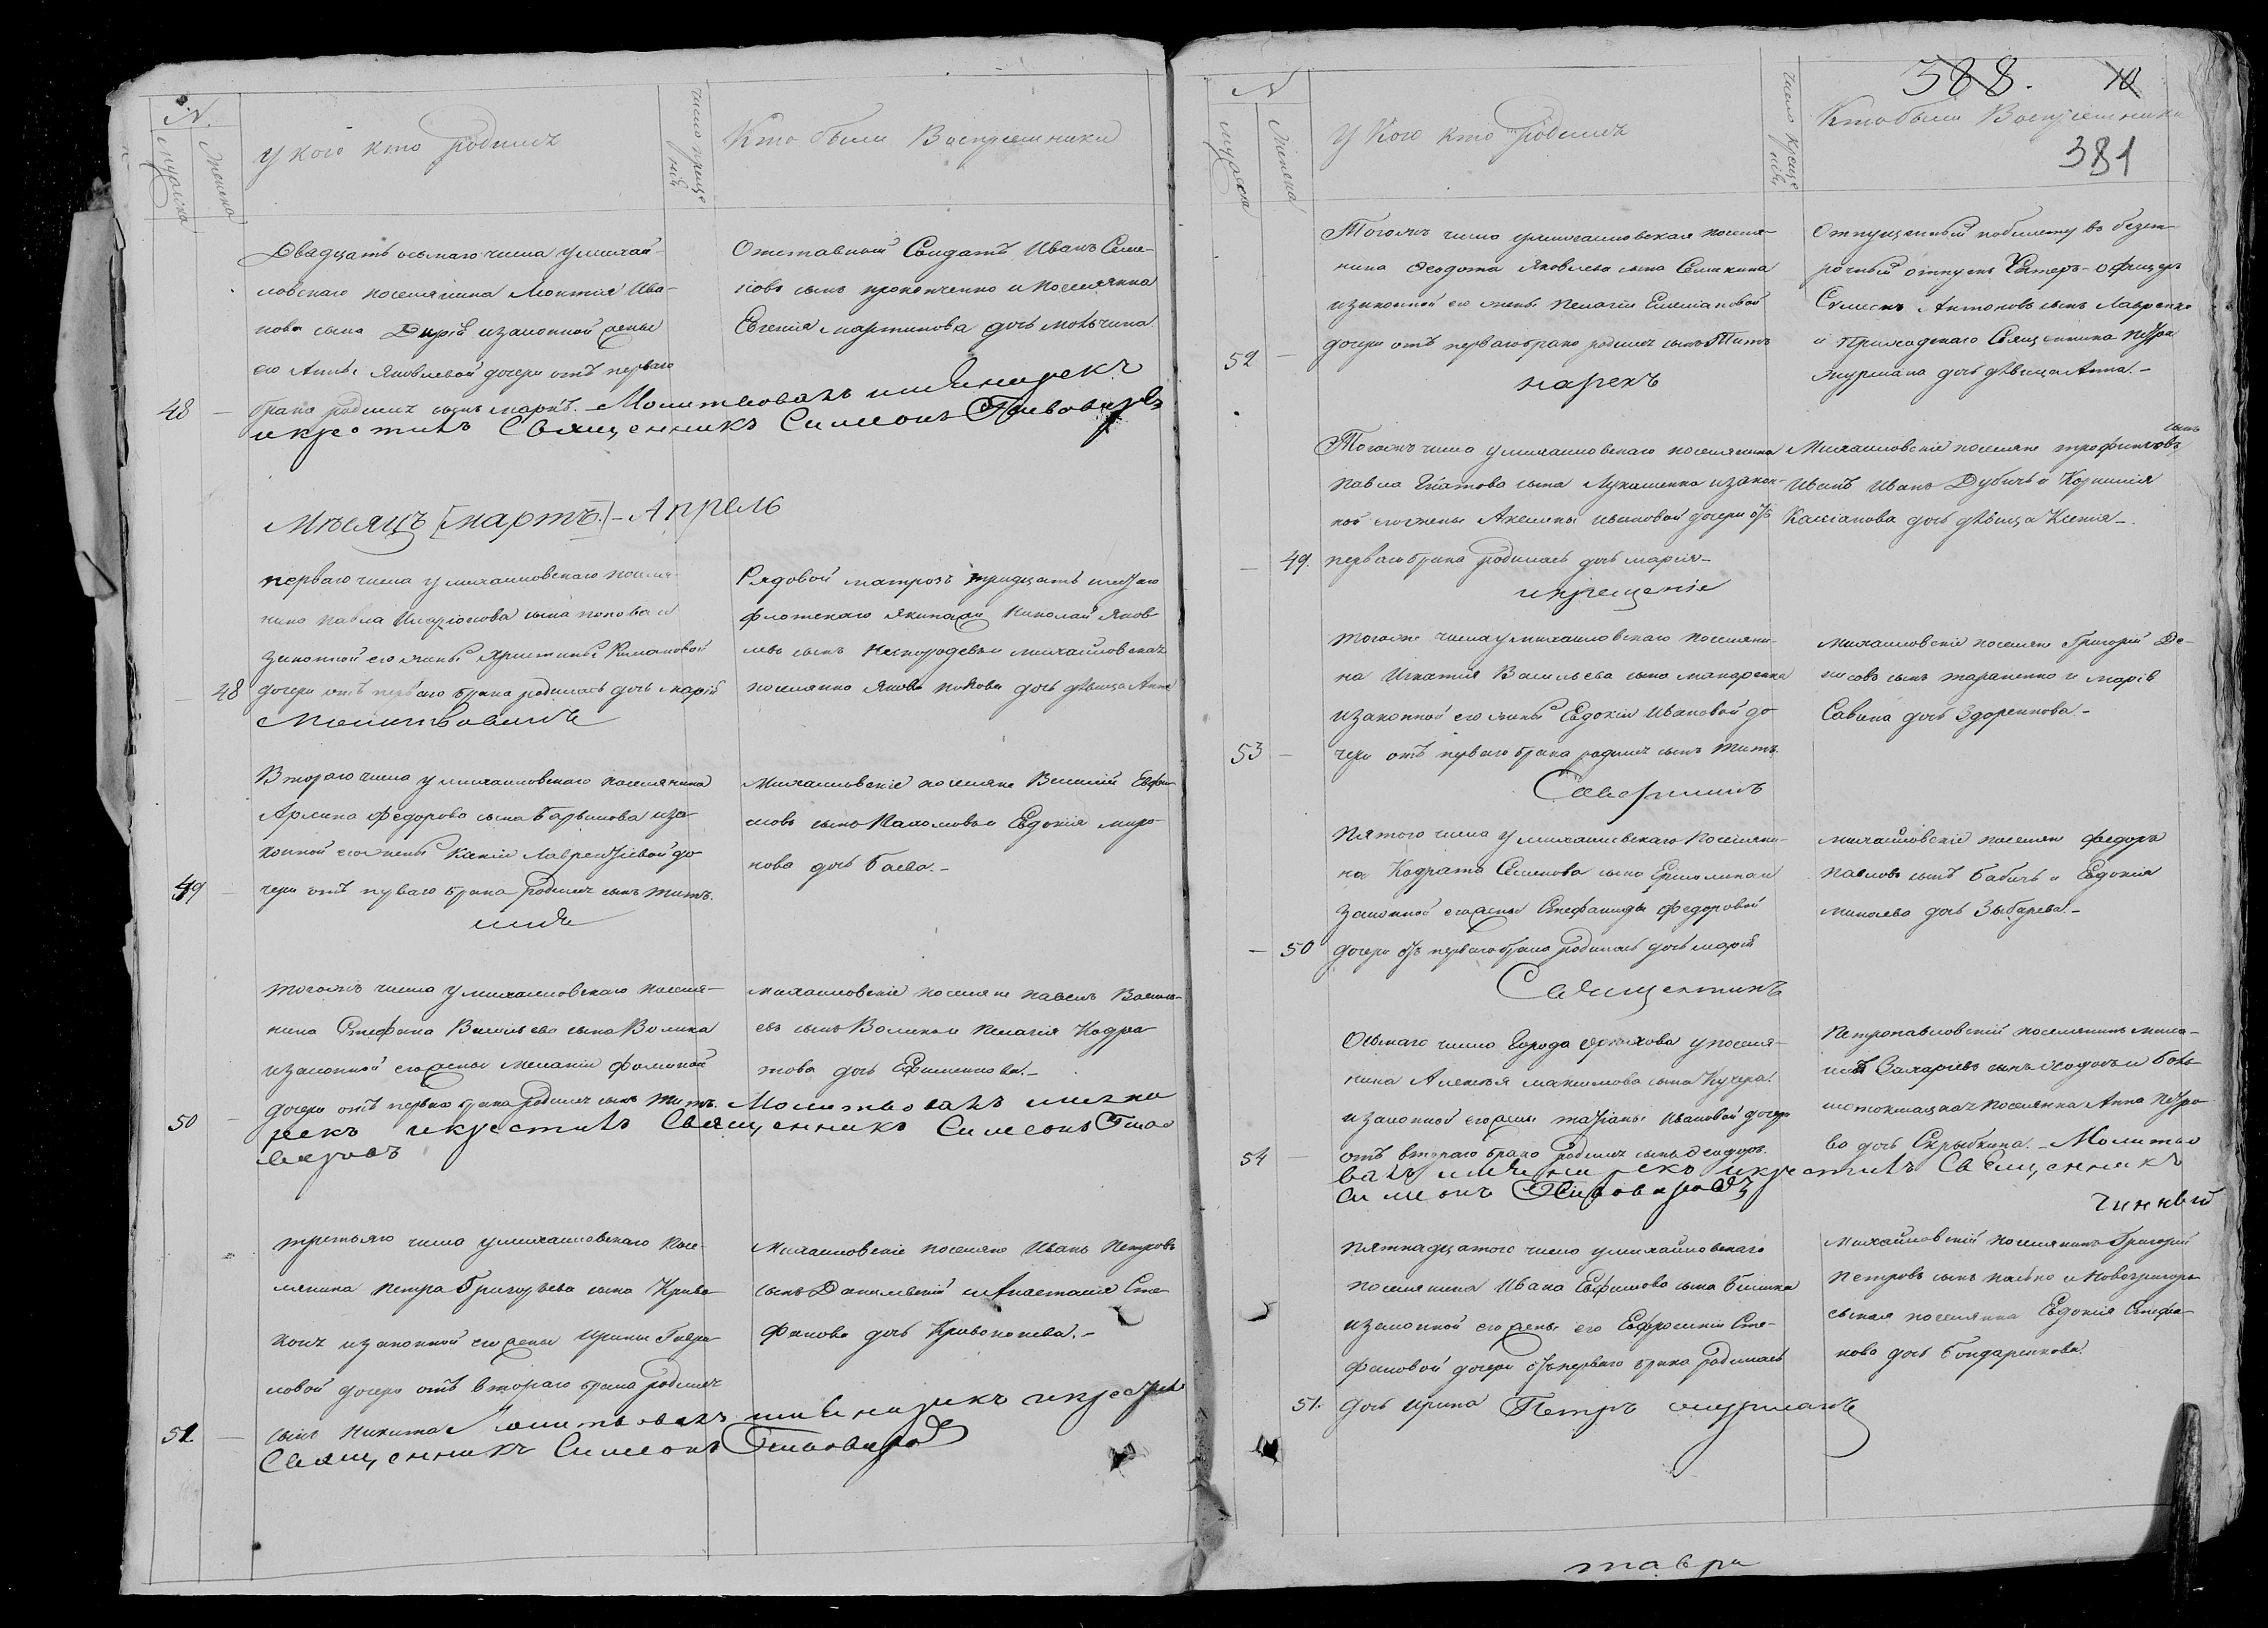 №
мужска
женска
у кого кто родился
число креще
нія
Кто были Воспріемники
Двадцать осьмаго числа у михай
ловскаго поселянина Ива-
нова сына изаконной жены
его Анны Яковлевой дочери отъ перваго
48 — брака родился сынъ марко. — Молитвовалъ имя нарекъ
и крестилъ Священникъ Симеонъ Пивоваровъ
Отставной Солдатъ Иванъ Семе-
новъ сынъ прокопченко и поселянка
Евгенія мартинова дочь
Мѣсяцъ [мартъ.] — Апрель
перваго числа у михаиловскаго поселя-
нина павла Иларіонова сына попова и
законной его жены Христины
— 48 дочери отъ перваго брака родилась дочь марія
Молитвовалъ
Рядовой матрозъ тридцать шестаго
флотскаго экипажа Николай Яков
левъ сынъ михаиловская
поселянка Якова попова дочь дѣвица Анна
Втораго числа у михаиловскаго поселянина
Федорова сына иза-
конной его жены Ксеніи Лаврентіевой до
49 — чери отъ перваго брака родился сынъ титъ.
имя
Михаиловскіе поселяне Василій Ефи-
мовъ сынъ и Евдокія миро-
нова дочь баева. —
тогожъ числа у михаиловскаго поселя-
нина Стефана Васильева сына Волика
изаконной его жены меланіи фоминой
50 — дочери отъ перваго брака родился сынъ титъ. Молитвовалъ имя на
рекъ и крестилъ Священникъ Симеонъ Пиво
варовъ
михаиловскіе поселяне павелъ Василь-
евъ сынъ Воликъ и пелагія Кодра-
това дочь Ефименкова. —
третьяго числа у михаиловскаго посе-
лянина петра Григорьева сына Криво
изаконной его жены Ирины Гаври
ловой дочери отъ втораго брака родился
51. — сынъ никита Молитвовалъ имя нарекъ и крестилъ
Священникъ Симеонъ Пивоваровъ
Михаиловскіе поселяне Иванъ Петровъ
сынъ Данилевскій и Анастасія Сте-
фанова дочь Кривоконева. —
№
мужска
женска
У кого кто родился
число креще
нія
388. 10
Кто были Воспріемники
381
Тогожъ числа у михаиловскаго поселя-
нина Ѳеодота Яковлева сына Семикина
изаконной его жены пелагіи Емелiановой
52 — дочери отъ перваго брака родился сынъ Титъ
нарекъ
Отпущенный по билету въ безсе-
рочный отпускъ Унтеръ-офицеръ
Антоновъ сынъ Лавренко
и приходскаго Священника петра
шурмана дочь дѣвица Анна. —
Тогожъ числа у михаиловскаго поселянина
павла Игнатова сына Лукашенка изакон-
ной его жены Акелины ивановой дочери отъ
— 49. перваго брака родилась дочь марія —
и крещеніе
Михаиловскіе поселяне трофимовъ сынъ
Иванъ Дубичъ и Корнилія
Касіанова дочь дѣвица Ксенія —
тогоже числа у михаиловскаго поселяни-
на Игнатія Васильева сына макаренка
изаконной его жены Евдокіи Ивановой до
53 — чери отъ перваго брака родился сынъ титъ.
Совершилъ
михаиловскіе поселяне Григорій Де-
нисовъ сынъ тараненко и марія
Савина дочь Здоренкова. —
Пятого числа у михаиловскаго поселяни-
на Кодрата Семенова сына и
законной его жены Стефаниды федоровой
— 50 дочери отъ перваго брака родилась дочь марія
Священникъ
михаиловскіе поселяне федоръ
павловъ сынъ бабичъ и Евдокія
минаева дочь Зыбарева. —
Осьмаго числа Города орехова у поселя-
нина Алексѣя максимова сына Кучера.
изаконной его жены татіаны Ивановой дочери
54 — отъ втораго брака родился сынъ Ѳеодоръ.
Петропавловскій поселянинъ
Захаріевъ сынъ и боль
шетокмацкая поселянка Анна петро
ва дочь Скрыбкина. — Молитво
валъ имя нарекъ и крестилъ Священникъ
Симеонъ Пивоваровъ
чинный
пятнадцатого число у михаиловскаго
поселянина Ивана Ефимова сына билика
изаконной его жены его Евфросиніи Сте-
фановой дочери отъ перваго брака родилась
51. дочь Ирина Петръ шурманъ
Михаиловскій поселянинъ Григорій
Петровъ сынъ и Новогригорь
евская поселянка Евдокія Стефа-
нова дочь бондаренкова.
таври